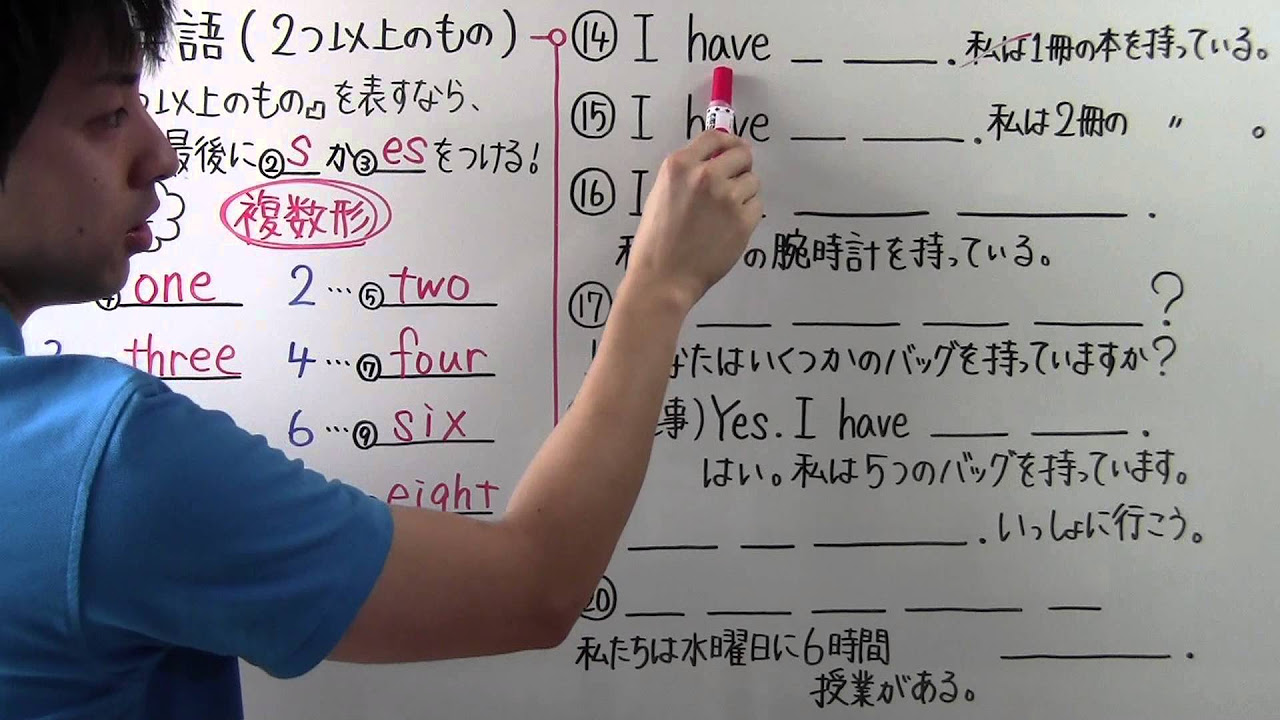 語(2つ以上のもの)
つ以上のもの』を表すなら、
最後に②sか③esをつける!
複数形
④one 2…⑤two
three 4…⑦four
6…⑨six
eight
⑭ I have _ ___. 私は1冊の本を持っている。
⑮ I have _ ___. 私は2冊の 〃 。
⑯ I ___ ___.
の腕時計を持っている。
⑰ ___ ___ ___ ___?
なたはいくつかのバッグを持っていますか?
事)Yes. I have ___ ___.
はい。私は5つのバッグを持っています。
___ _ ___. いっしょに行こう。
⑳ ___ ___ ___ ___ ___
私たちは水曜日に6時間 ___.
授業がある。